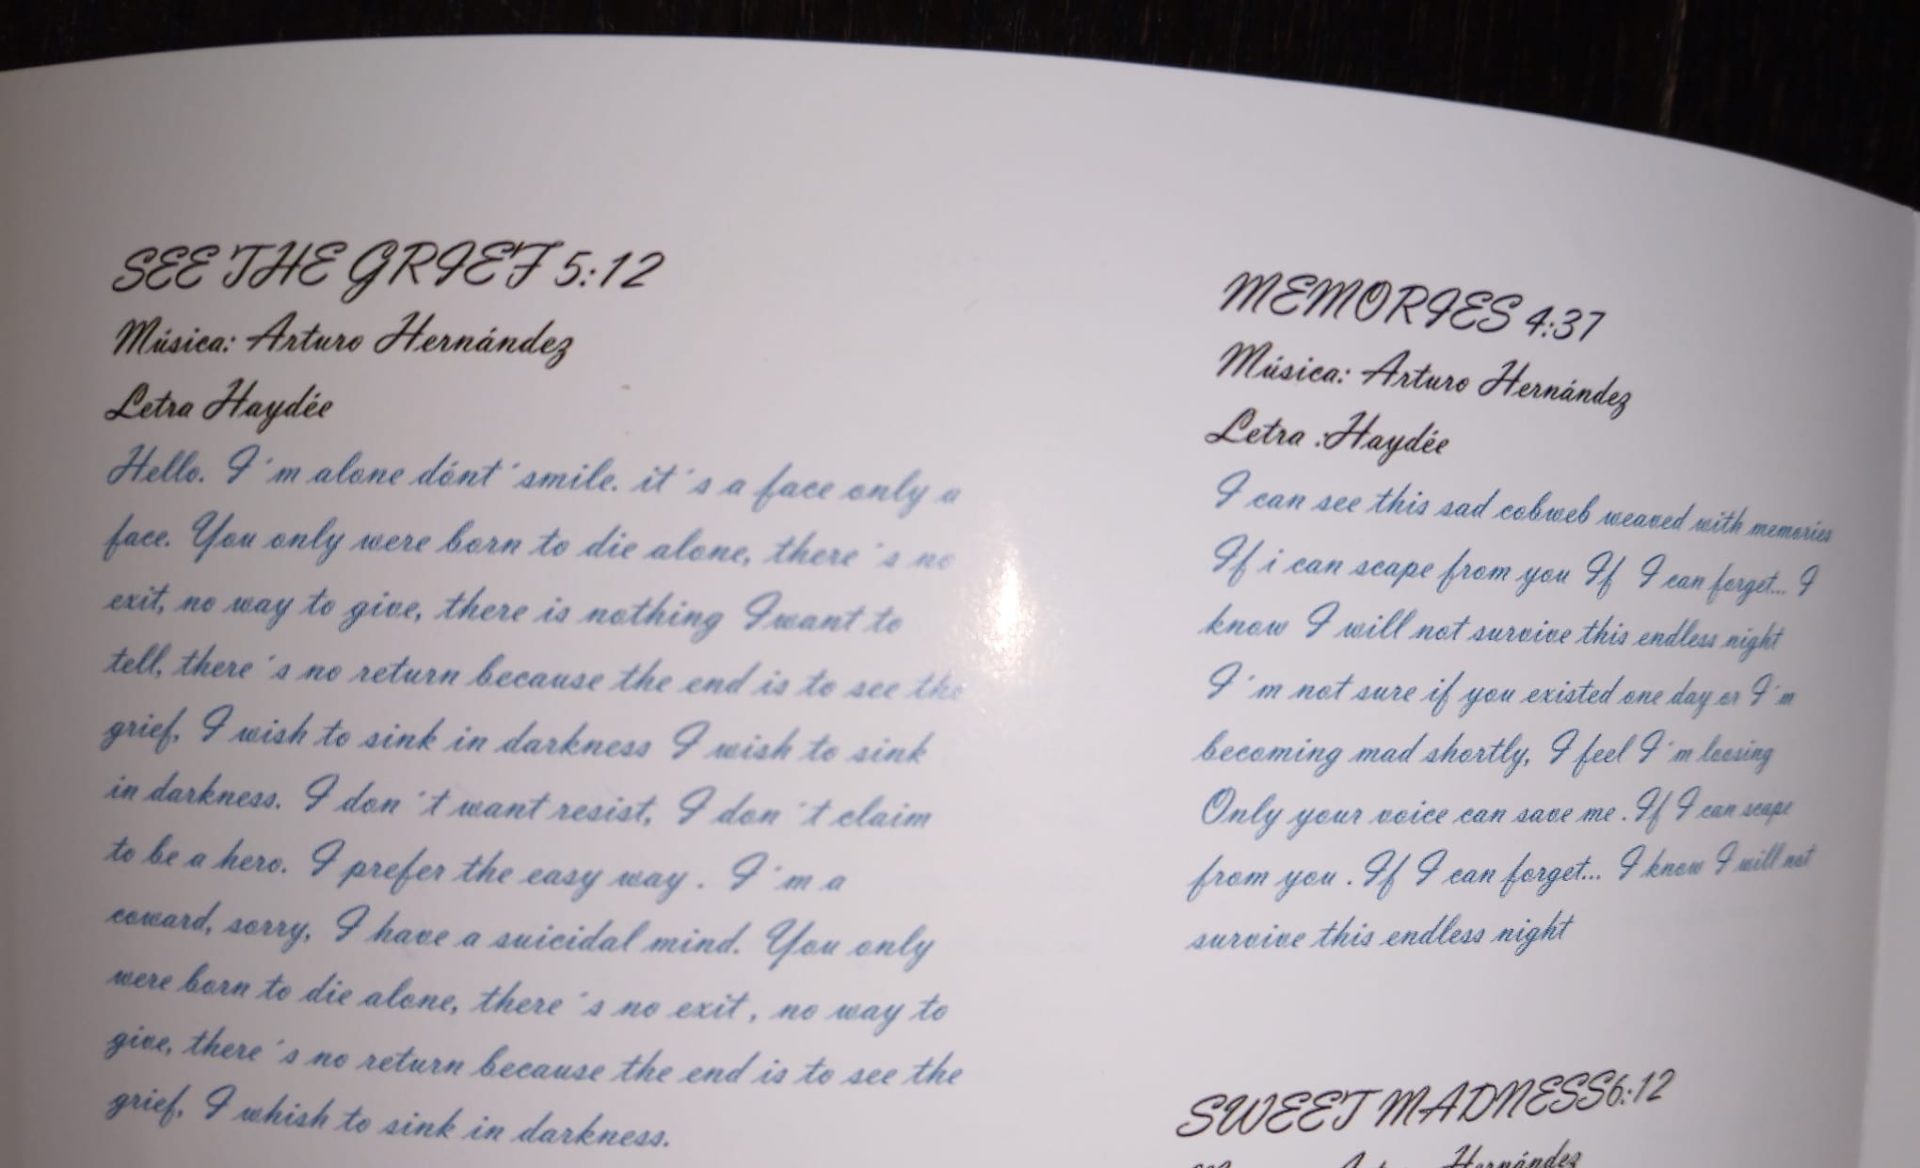 SEE THE GRIEF 5:12
Música: Arturo Hernández
Letra Haydée
Hello. I´m alone dónt´smile. it´s a face only a
face. You only were born to die alone, there´s no
exit, no way to give, there is nothing I want to
tell, there´s no return because the end is to see the
grief, I wish to sink in darkness I wish to sink
in darkness. I don´t want resist, I don´t claim
to be a hero. I prefer the easy way. I´m a
coward, sorry, I have a suicidal mind. You only
were born to die alone, there´s no exit, no way to
give, there´s no return because the end is to see the
grief, I whish to sink in darkness.
MEMORIES 4:37
Música: Arturo Hernández
Letra :Haydée
I can see this sad cobweb weaved with memories
If i can scape from you If I can forget... I
know I will not survive this endless night
I´m not sure if you existed one day or I´m
becoming mad shortly, I feel I´m loosing
Only your voice can save me. If I can scape
from you. If I can forget... I know I will not
survive this endless night
SWEET MADNESS6:12
Hernández